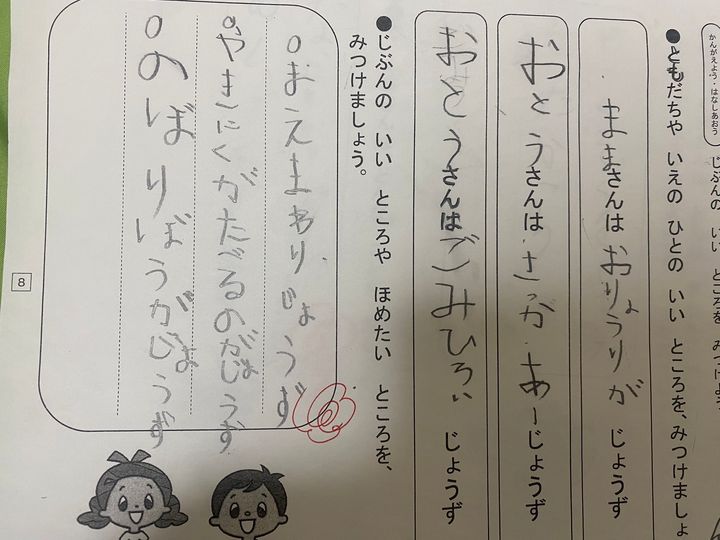 かんがえよう・はなしあおう
じぶんの いい ところを みつけましょう
●ともだちや いえの ひとの いい ところを、みつけましょ
ままさんは おりょうりが じょうず
おとうさんは さっかあーじょうず
おとうさんは ごみひろい じょうず
●じぶんの いい ところや ほめたい ところを、
みつけましょう。
○おえまわりじょうず
○やきにくがたべるのがじょうず
○のぼりぼうがじょうず
8